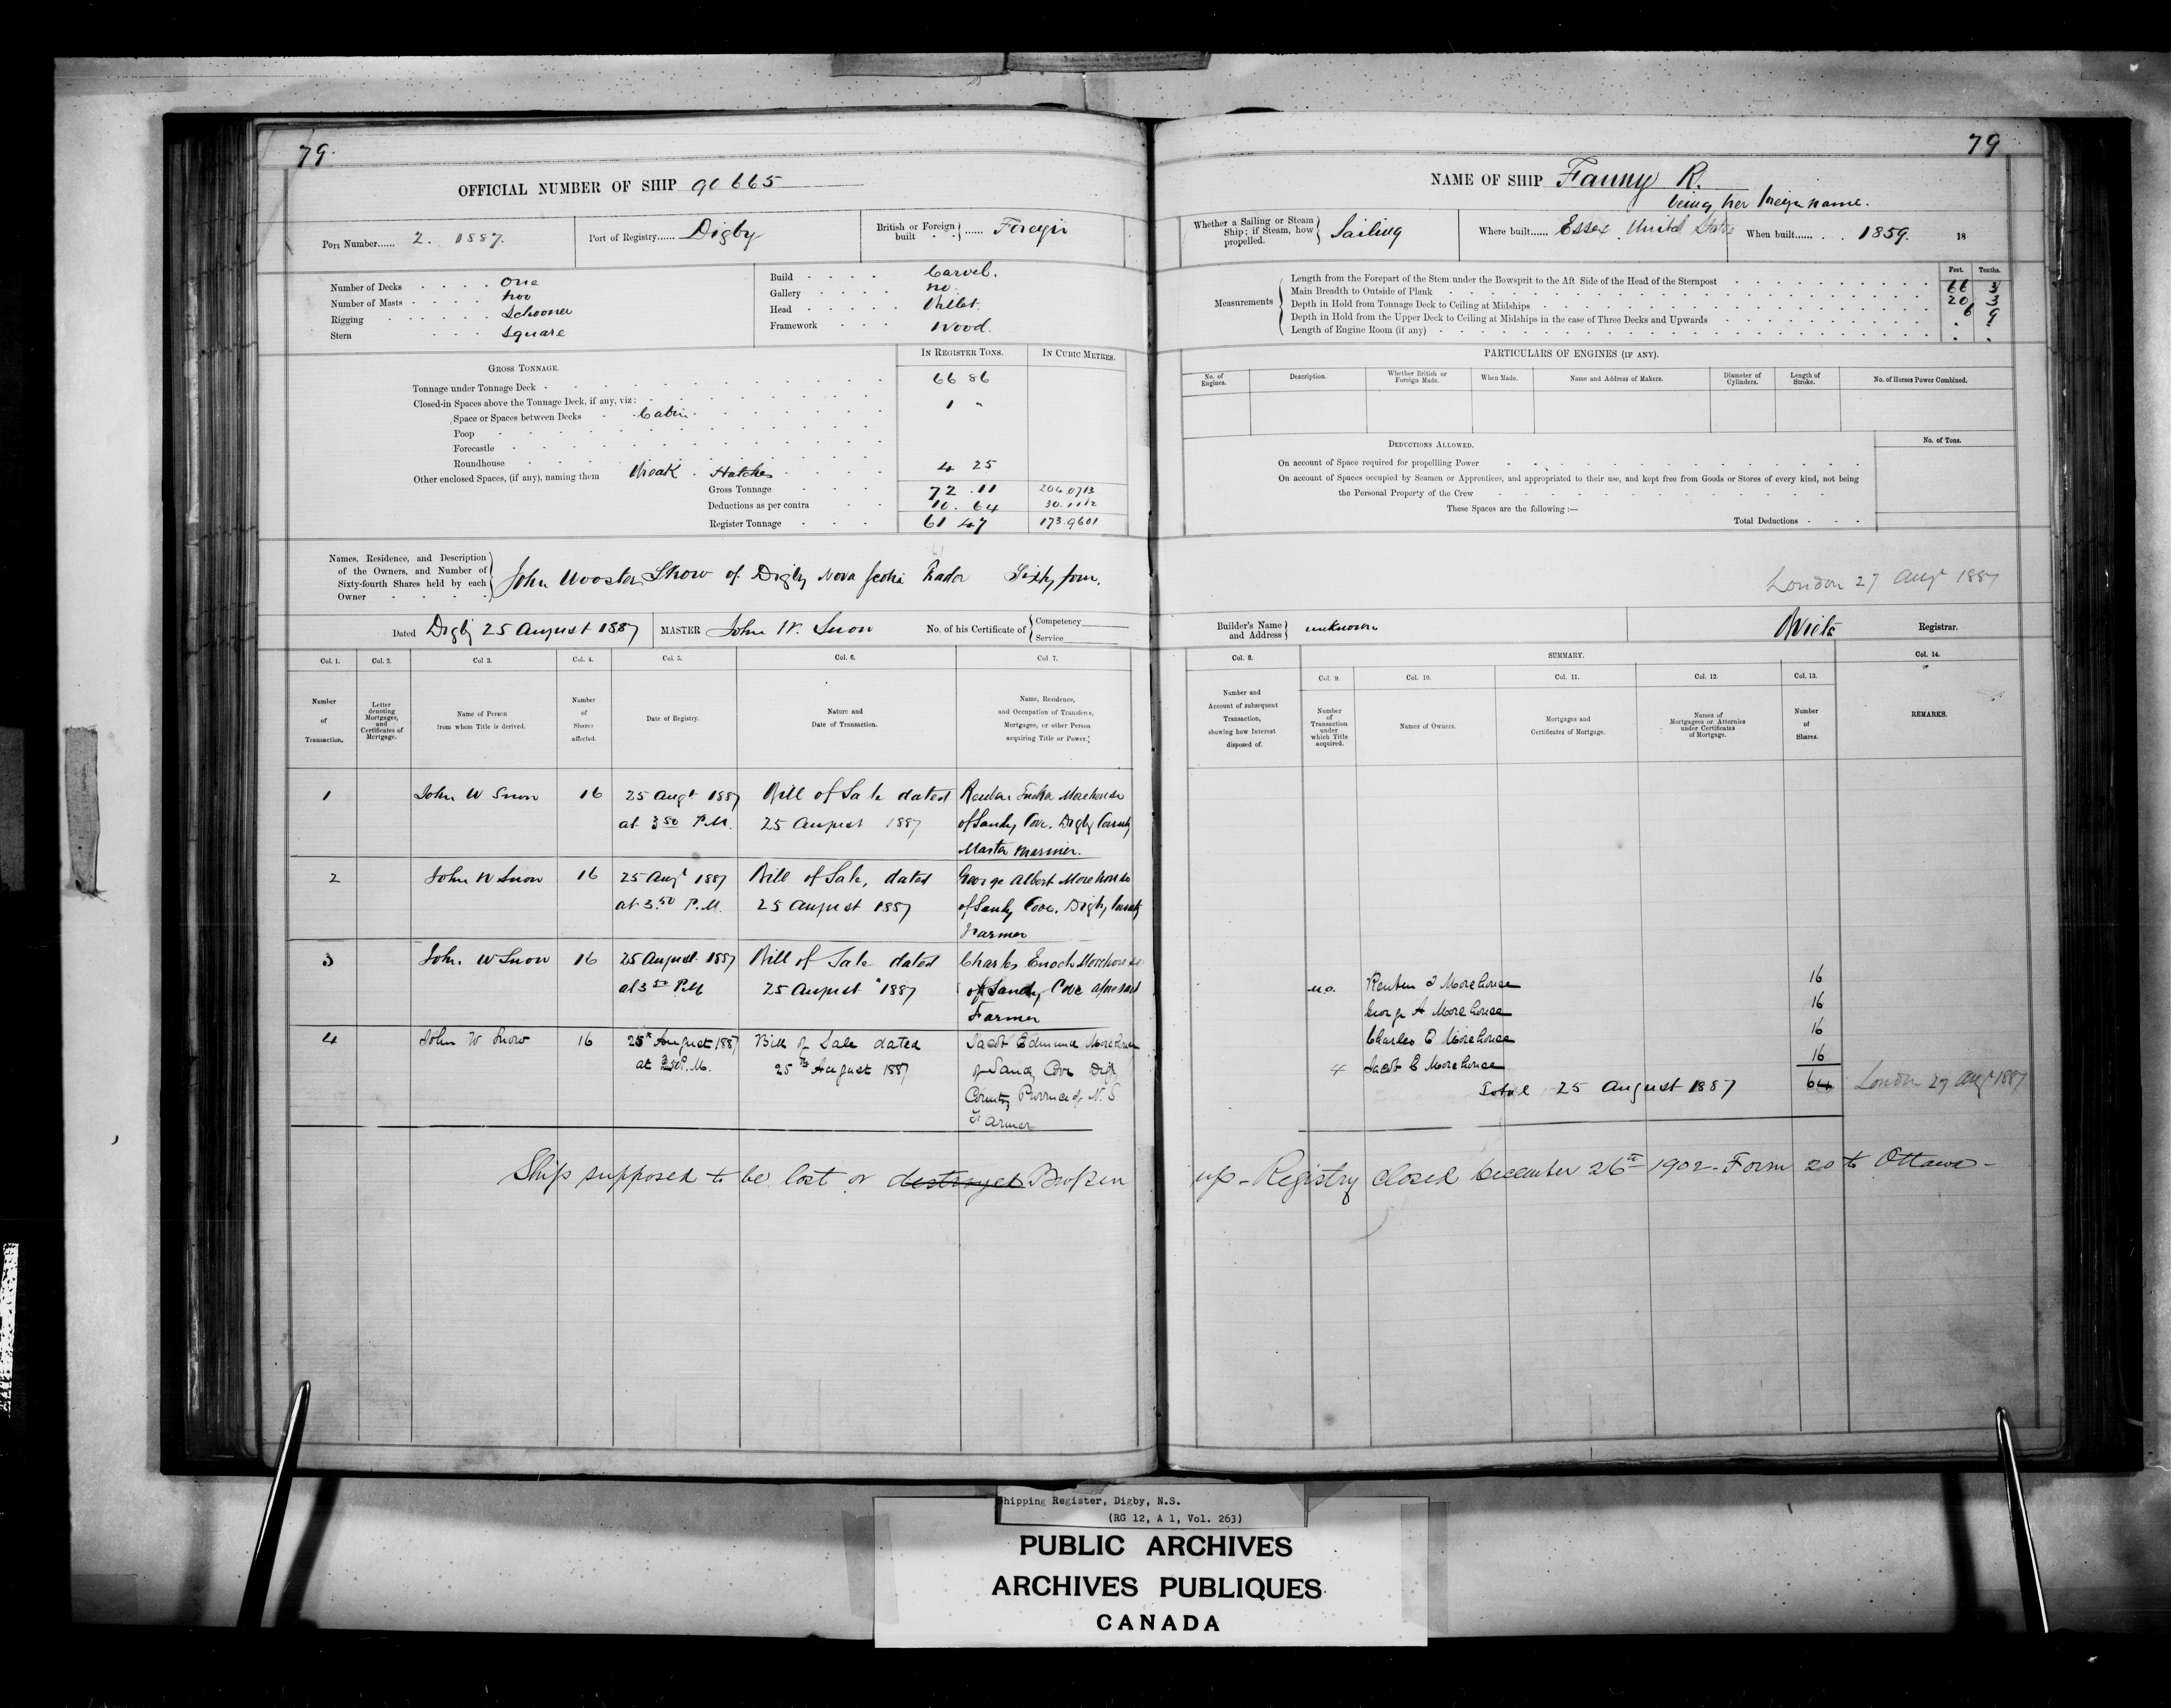 79.
OFFICIAL NUMBER OF SHIP 90665
Port Number...... 2. 1887.
Port of Registry...... Digby
British or Foreign built } ...... Foreign
Number of Decks One
Number of Masts Two
Rigging Schooner
Stern Square
Build Carvel.
Gallery no
Head Billet
Framework Wood.
GROSS TONNAGE.
IN REGISTER TONS.
IN CUBIC METRES.
Tonnage under Tonnage Deck 66 86
Closed-in Spaces above the Tonnage Deck, if any, viz:
Space or Spaces between Decks Cabin 1 "
Poop
Forecastle
Roundhouse
Other enclosed Spaces, (if any), naming them Break . Hatches 4 25
Gross Tonnage 72 . 11 204.0713
Deductions as per contra 10. 64 30.1112
Register Tonnage 61 47 173.9601
Names, Residence, and Description
of the Owners, and Number of
Sixty-fourth Shares held by each
Owner
John Wooster Snow of Digby Nova Scotia Trader Sixty four.
Dated Digby 25 August 1887
MASTER John W. Snow
No. of his Certificate of { Competency
Service
Col. 1.
Col. 2.
Col 3.
Col. 4.
Col. 5.
Col. 6.
Col 7.
Number of Transaction.
Letter denoting Mortgages, and Certificates of Mortgage.
Name of Person from whom Title is derived.
Number of Shares affected.
Date of Registry.
Nature and Date of Transaction.
Name, Residence, and Occupation of Transferee, Mortgagee, or other Person acquiring Title or Power.
1 John W Snow 16 25 Augt 1887 Bill of Sale dated Reuben Morehouse
at 3 50 P.M. 25 August 1887 of Sandy Cove, Digby County
Master Mariner.
2 John W Snow 16 25 Augt 1887 Bill of Sale, dated George Albert Morehouse
at 3.50 P.M. 25 August 1887 of Sandy Cove, Digby County
Farmer
3 John W Snow 16 25 August 1887 Bill of Sale dated Charles Enoch Morehouse
at 3 50 PM 25 August 1887 of Sandy Cove aforesaid
Farmer
4 John W Snow 16 25th August 1887 Bill of Sale dated Jacob Edmund Morehouse
at 3.50 P.M. 25th August 1887 of Sandy Cove Digby
County Province of N.S
Farmer
Ship supposed to be lost or destroyed Broken
79
NAME OF SHIP Fanny R.
being her foreign name.
Whether a Sailing or Steam Ship; if Steam, how propelled. } Sailing
Where built...... Essex, United States
When built...... 1859.
18
Measurements
Feet. Tenths.
Length from the Forepart of the Stem under the Bowsprit to the Aft Side of the Head of the Sternpost 66 3
Main Breadth to Outside of Plank 20 3
Depth in Hold from Tonnage Deck to Ceiling at Midships 6 9
Depth in Hold from the Upper Deck to Ceiling at Midships in the case of Three Decks and Upwards
Length of Engine Room (if any)
PARTICULARS OF ENGINES (IF ANY).
No. of Engines.
Description.
Whether British or Foreign Made.
When Made.
Name and Address of Makers.
Diameter of Cylinders.
Length of Stroke.
No. of Horses Power Combined.
DEDUCTIONS ALLOWED.
No. of Tons.
On account of Space required for propellling Power
On account of Spaces occupied by Seamen or Apprentices, and appropriated to their use, and kept free from Goods or Stores of every kind, not being
the Personal Property of the Crew
These Spaces are the following :—
Total Deductions
London 27 Augt 1887
Builder's Name and Address } unknown
Registrar.
Col. 8.
SUMMARY.
Col. 14.
Col. 9.
Col. 10.
Col. 11.
Col. 12.
Col. 13.
Number and Account of subsequent Transaction, showing how Interest disposed of.
Number of Transaction under which Title acquired.
Names of Owners.
Mortgages and Certificates of Mortgage.
Names of Mortgagees or Attornies under Certificates of Mortgage.
Number of Shares.
REMARKS.
Reuben Morehouse 16
George A Morehouse 16
Charles E Morehouse 16
4 Jacob E Morehouse 16
Total 25 August 1887 64 London 27 Augt 1887
up - Registry closed December 26th 1902 - Form 20 to Ottawa -
Shipping Register, Digby, N.S.
(RG 12, A 1, Vol. 263)
PUBLIC ARCHIVES
ARCHIVES PUBLIQUES
CANADA